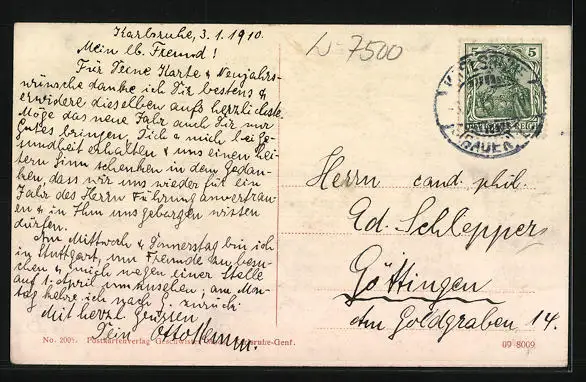 Karlsruhe, 3.1.1910.
Mein lb. Freund!
Für Deine Karte & Neujahrs-
wünsche danke ich Dir bestens &
erwidere dieselben aufs herzlichste.
Möge das neue Jahr auch Dir nur
Gutes bringen, Dich & mich bei Ge-
sundheit erhalten & uns einen hei-
tern Sinn schenken in dem Gedan-
ken, dass wir uns wieder für ein
Jahr des Herrn Führung anvertrau-
en & in Ihm uns geborgen wissen
dürfen.
Am Mittwoch & Donnerstag bin ich
in Stuttgart, um Freunde zu besu-
chen & mich wegen einer Stelle
auf 1. April umzusehen; am Mon-
tag kehre ich nach G. zurück.
Mit herzl. Grüssen
Dein Otto
W-7500
5
Herrn cand. phil.
Ed. Schlepper
Göttingen
Am Goldgraben 14.
No. 200 Postkartenverlag Geschwister Karlsruhe-Genf.
09 8009